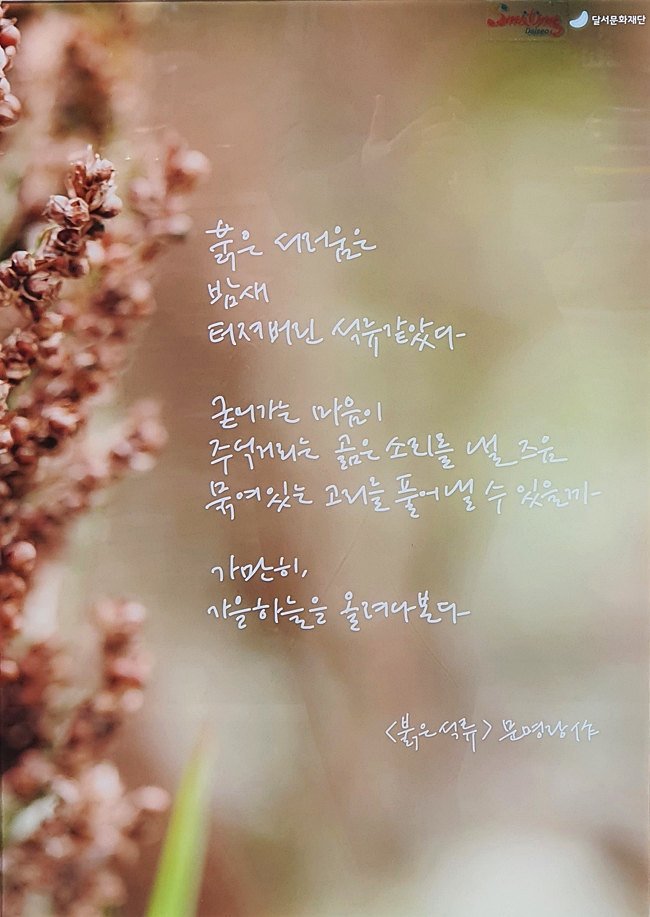 Smiling
Dalseo
달서문화재단
붉은 서러움은
밤새
터져버린 석류같았다
굳어가는 마음이
주억거리는 곪은 소리를 낼 즈음
묶여있는 고리를 풀어낼 수 있을까
가만히,
가을하늘을 올려다본다
<붉은석류> 문영랑 作